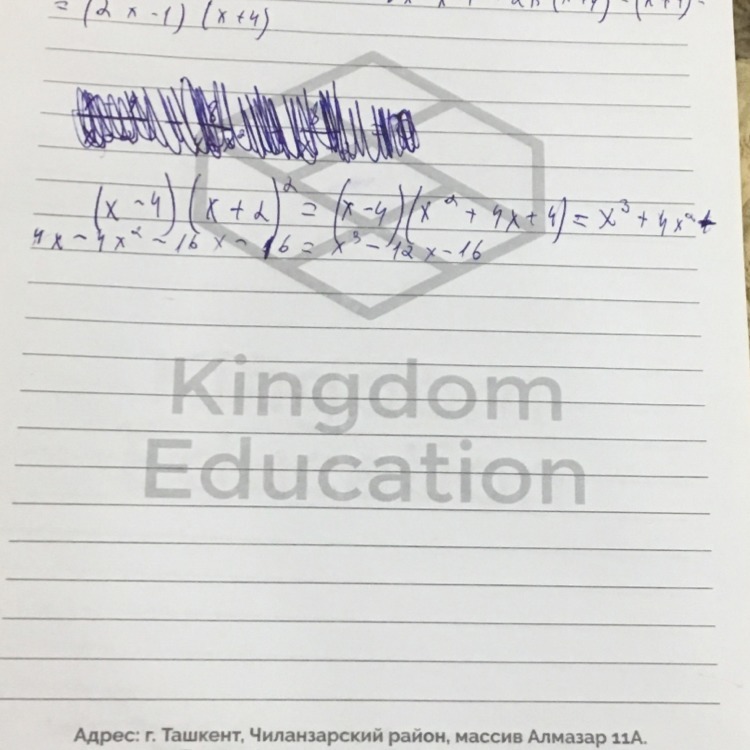 = (2x-1)(x+4)
(x-4)(x+2)² = (x-4)(x²+4x+4) = x³+4x²+
4x-4x²-16x-16 = x³-12x-16
Kingdom
Education
Адрес: г. Ташкент, Чиланзарский район, массив Алмазар 11А.